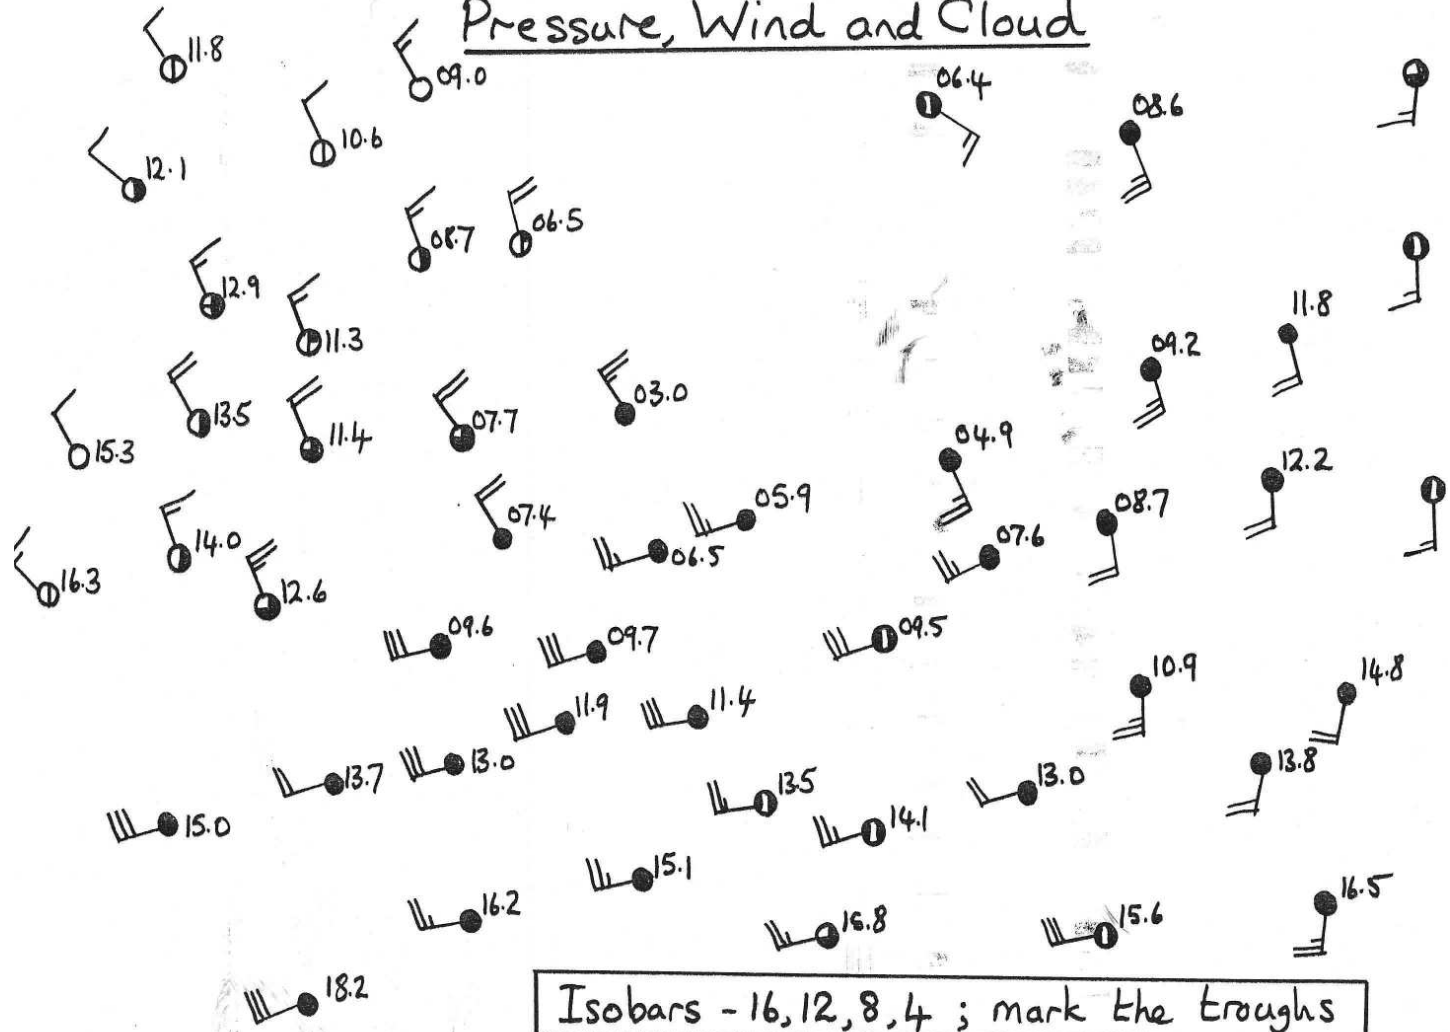 Pressure, Wind and Cloud
11.8
09.0
06.4
08.6
10.6
12.1
08.7
06.5
12.9
11.3
11.8
09.2
13.5
11.4
07.7
03.0
15.3
04.9
12.2
07.4
05.9
08.7
14.0
06.5
07.6
16.3
12.6
09.6
09.7
09.5
10.9
14.8
11.9
11.4
13.7
13.0
13.5
13.0
13.8
15.0
14.1
15.1
16.2
15.6
16.5
18.2
Isobars - 16, 12, 8, 4 ; mark the troughs